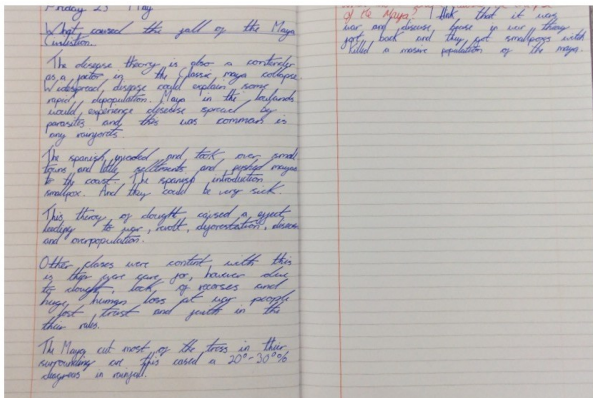 Friday 23 May
What caused the fall of the Maya
The disease theory is also a contender
as a factor in the classic maya collapse
Widespread disease could explain some
rapid depopulation. Maya in the lowlands
would experience disease spread by
parasites and this was common in
any
The spanish invaded and took over small
towns and little settlements and pushed mayas
to the coast. The spanish introduction
smallpox. And they could be very sick
This theory of dought caused a effect
leading to war, revolt, deforestation, disease
and overpopulation.
Other were content with this
is they were for, however due
to dought, lack of and
huge human loss at war people
lost trust and faith in the
their
The Maya cut most of the tress in their
surrounding are this cased a 20°-30°%
in
of the Maya? I think that it was
war and disease, in war they
got back and they got smallpox witch
killed a massive population of the maya.